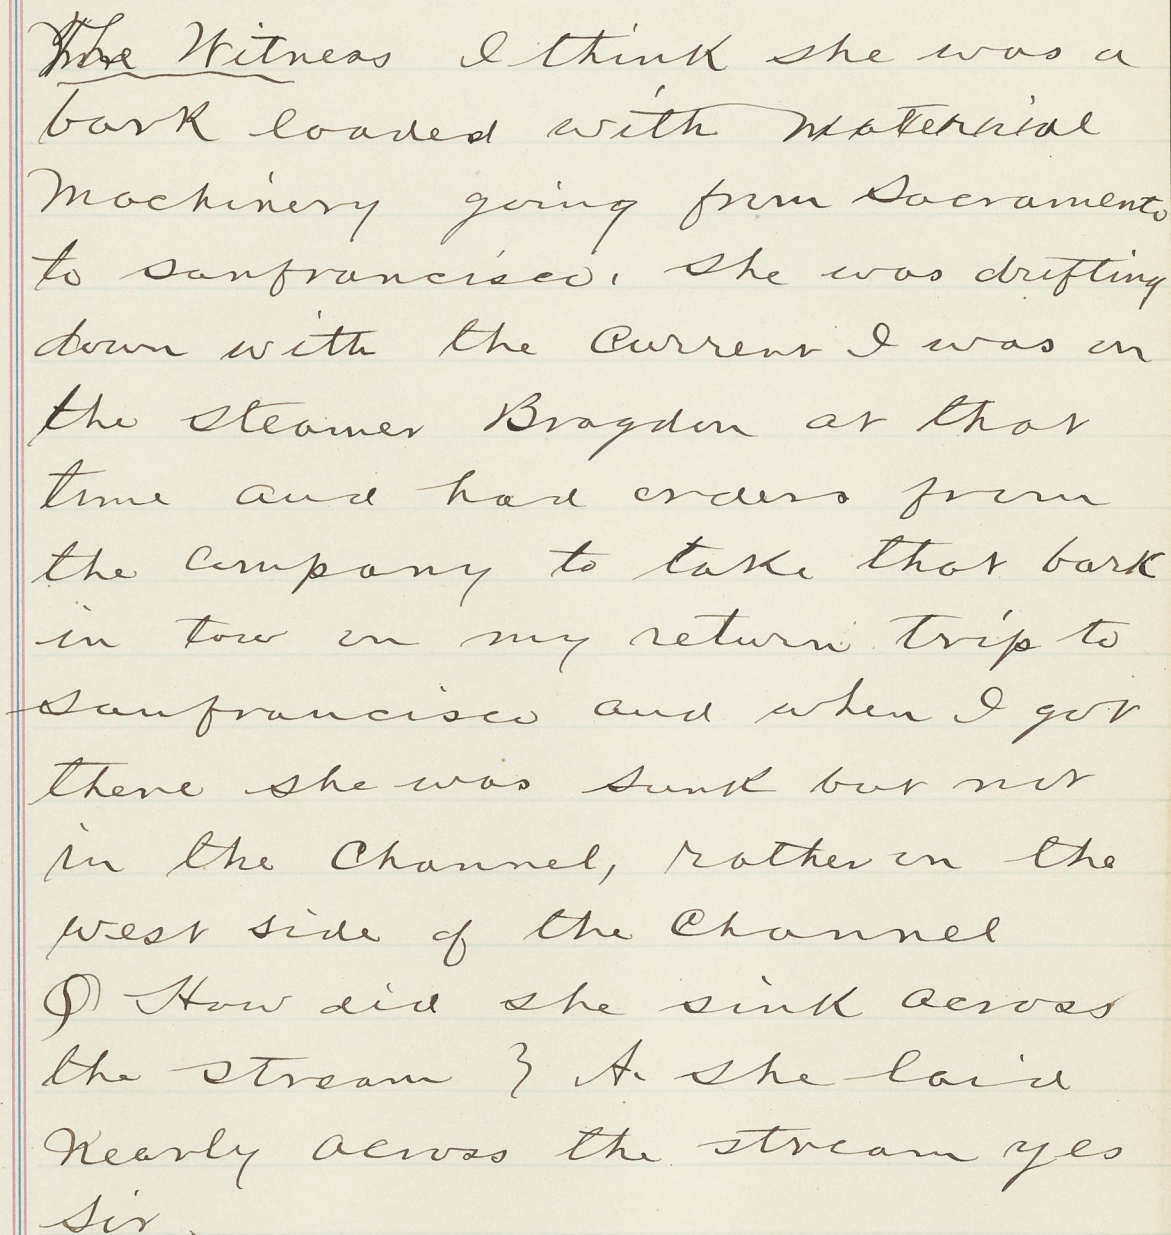 The Witness I think she was a
bark loaded with material
Machinery going from Sacramento
to sanfrancisco. She was drifting
down with the Current I was on
the steamer Bragdon at that
time and had orders from
the company to take that bark
in tow on my return trip to
sanfrancisco and when I got
there she was sunk but not
in the Channel, rather on the
west side of the Channel
Q How did she sink across
the stream ? A. She laid
nearly across the stream yes
sir.